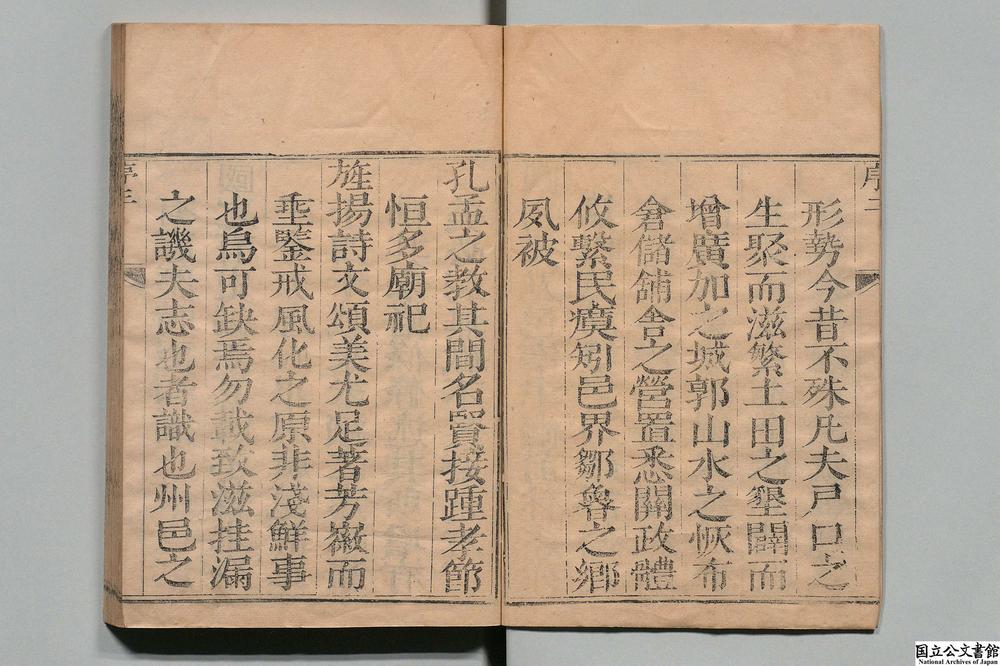 形勢今昔不殊凡夫戸口之
生聚而滋繁土田之墾闢而
增廣加之城郭山水之恢布
倉儲舖舎之營置悉關政體
攸繫民瘼矧邑界鄒魯之鄉
夙被
孔孟之教其間名賢接踵孝節
恒多廟祀
旌揚詩文頌美尤足著芳徽而
埀鑒戒風化之原非淺鮮事
也烏可缺焉勿載致滋挂漏
之譏夫志也者識也州邑之
国立公文書館
National Archives of Japan